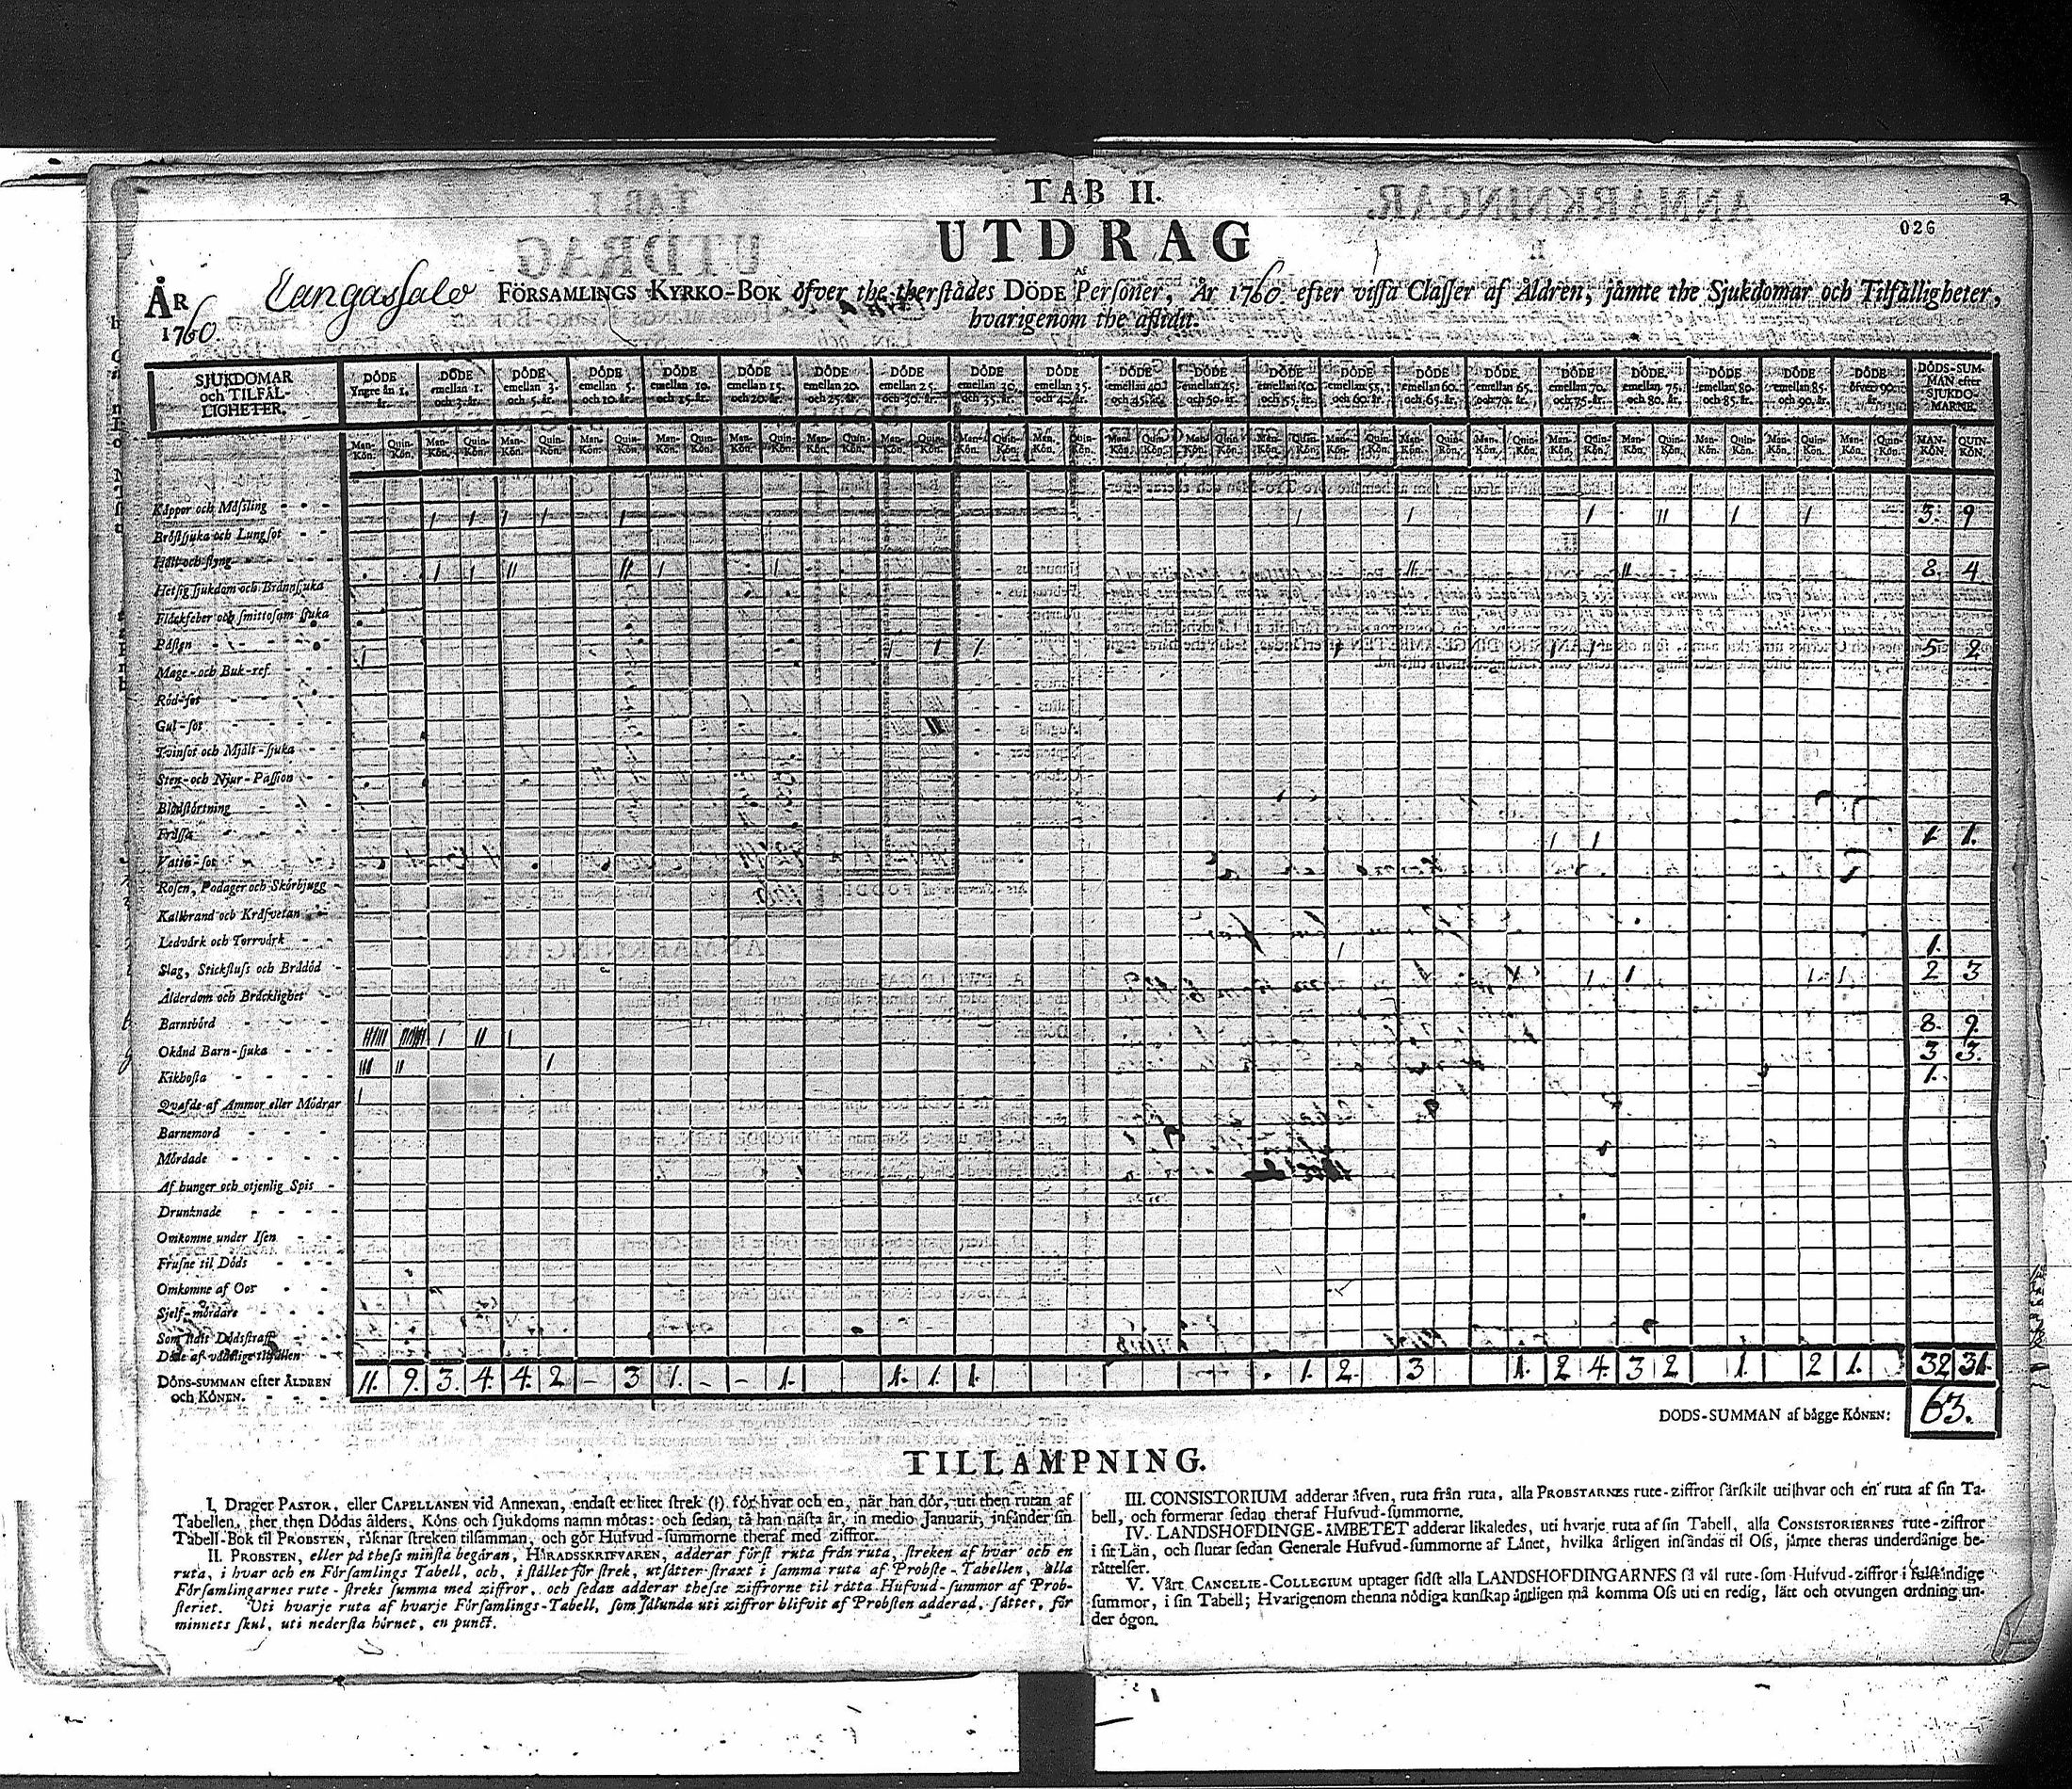 TAB II.
UTDRAG
026
ÅR 1760. Cangassalo FÖRSAMLINGS KYRKO-BOK öfver the therstädes DÖDE Personer, År 1760 efter vissa Classer af Åldren, jämte the Sjukdomar och Tilfälligheter,
hvarigenom the aflidit.
SJUKDOMAR och TILFÄLLIGHETER.
DÖDE Yngre än 1. år.
DÖDE emellan 1. och 3. år.
DÖDE emellan 3. och 5. år.
DÖDE emellan 5. och 10. år.
DÖDE emellan 10. och 15. år.
DÖDE emellan 15. och 20. år.
DÖDE emellan 20. och 25. år.
DÖDE emellan 25. och 30. år.
DÖDE emellan 30. och 35. år.
DÖDE emellan 35. och 40. år.
DÖDE emellan 40. och 45. år.
DÖDE emellan 45. och 50. år.
DÖDE emellan 50. och 55. år.
DÖDE emellan 55. och 60. år.
DÖDE emellan 60. och 65. år.
DÖDE emellan 65. och 70. år.
DÖDE emellan 70. och 75. år.
DÖDE emellan 75. och 80. år.
DÖDE emellan 80. och 85. år.
DÖDE emellan 85. och 90. år.
DÖDE öfver 90. år.
DÖDS-SUMMAN efter SJUKDOMARNE.
Man-Kön. Quin-Kön. Man-Kön. Quin-Kön. Man-Kön. Quin-Kön. Man-Kön. Quin-Kön. Man-Kön. Quin-Kön. Man-Kön. Quin-Kön. Man-Kön. Quin-Kön. Man-Kön. Quin-Kön. Man-Kön. Quin-Kön. Man-Kön. Quin-Kön. Man-Kön. Quin-Kön. Man-Kön. Quin-Kön. Man-Kön. Quin-Kön. Man-Kön. Quin-Kön. Man-Kön. Quin-Kön. Man-Kön. Quin-Kön. Man-Kön. Quin-Kön. Man-Kön. Quin-Kön. Man-Kön. Quin-Kön. Man-Kön. Quin-Kön. Man-Kön. Quin-Kön. MAN-KÖN. QUIN-KÖN.
Koppor och Mässling
Bröstsjuka och Lungsot / / / / / / / / // / / 3. 9
Håll och styng
Hetsig sjukdom och Brännsjuka / / // // / / // // 8. 4
Fläckfeber och smittosam sjuka
Påssen
Mage- och Buk-ref / / / / / / / 5 2
Röd-sot
Gul-sot
Tvinsot och Mjält-sjuka
Sten- och Njur-Passion
Blodstörtning
Frässa
Vattu-sot / / 1 1.
Rosen, Podager och Skörbjugg
Kallbrand och Kräfvetan
Ledvärk och Torrvärk
Slag, Stickfluss och Brådöd / 1.
Ålderdom och Bräcklighet / / / / 2 3
Barnsbörd
Okänd Barn-sjuka / // / 8. 9.
Kikhosta /// // / 3 3.
Qvafde af Ammor eller Mödrar / 1.
Barnemord
Mördade
Af hunger och otjenlig Spis
Drunknade
Omkomne under Isen
Frusne til Döds
Omkomne af Oos
Sjelf-mördare
Som lidit Dödsstraff
Döde af vådelige tilfällen
DÖDS-SUMMAN efter ÅLDREN och KÖNEN. 11. 9. 3. 4. 4. 2 - 3 1. - - 1. 1. 1. 1. 1. 2. 3 1. 2 4. 3 2 1. 2 1. 32 31.
DÖDS-SUMMAN af bägge KÖNEN: 63.
TILLÄMPNING.
I. Drager PASTOR, eller CAPELLANEN vid Annexan, endast et litet strek (ı) för hvar och en, när han dör, uti then rutan af
Tabellen, ther then Dödas ålders, Köns och sjukdoms namn mötas: och sedan, tå han nästa år, in medio Januarii, insänder sin
Tabell-Bok til PROBSTEN, räknar streken tilsamman, och gör Hufvud-summorne theraf med ziffror.
II. PROBSTEN, eller på thess minsta begäran, HÄRADSSKRIFVAREN, adderar först ruta från ruta, streken af hvar och en
ruta, i hvar och en Församlings Tabell, och, i stället för strek, utsätter straxt i samma ruta af Probste-Tabellen, alla
Församlingarnes rute-streks summa med ziffror, och sedan adderar thesse ziffrorne til rätta Hufvud-summor af Prob-
steriet. Uti hvarje ruta af hvarje Församlings-Tabell, som sålunda uti ziffror blifvit af Probsten adderad, sättes, för
minnets skul, uti nedersta hörnet, en punct.
III. CONSISTORIUM adderar äfven, ruta från ruta, alla PROBSTARNES rute-ziffror särskilt uti hvar och en ruta af sin Ta-
bell, och formerar sedan theraf Hufvud-summorne.
IV. LANDSHÖFDINGE-ÄMBETET adderar likaledes, uti hvarje ruta af sin Tabell, alla CONSISTORIERNES rute-ziffror
i sit Län, och slutar sedan Generale Hufvud-summorne af Länet, hvilka årligen insändas til Oss, jämte theras underdånige be-
rättelser.
V. Vårt CANCELIE-COLLEGIUM uptager sidst alla LANDSHÖFDINGARNES så väl rute-som Hufvud-ziffror i fulständige
summor, i sin Tabell; Hvarigenom thenna nödiga kunskap äntligen må komma Oss uti en redig, lätt och otvungen ordning un-
der ögon.